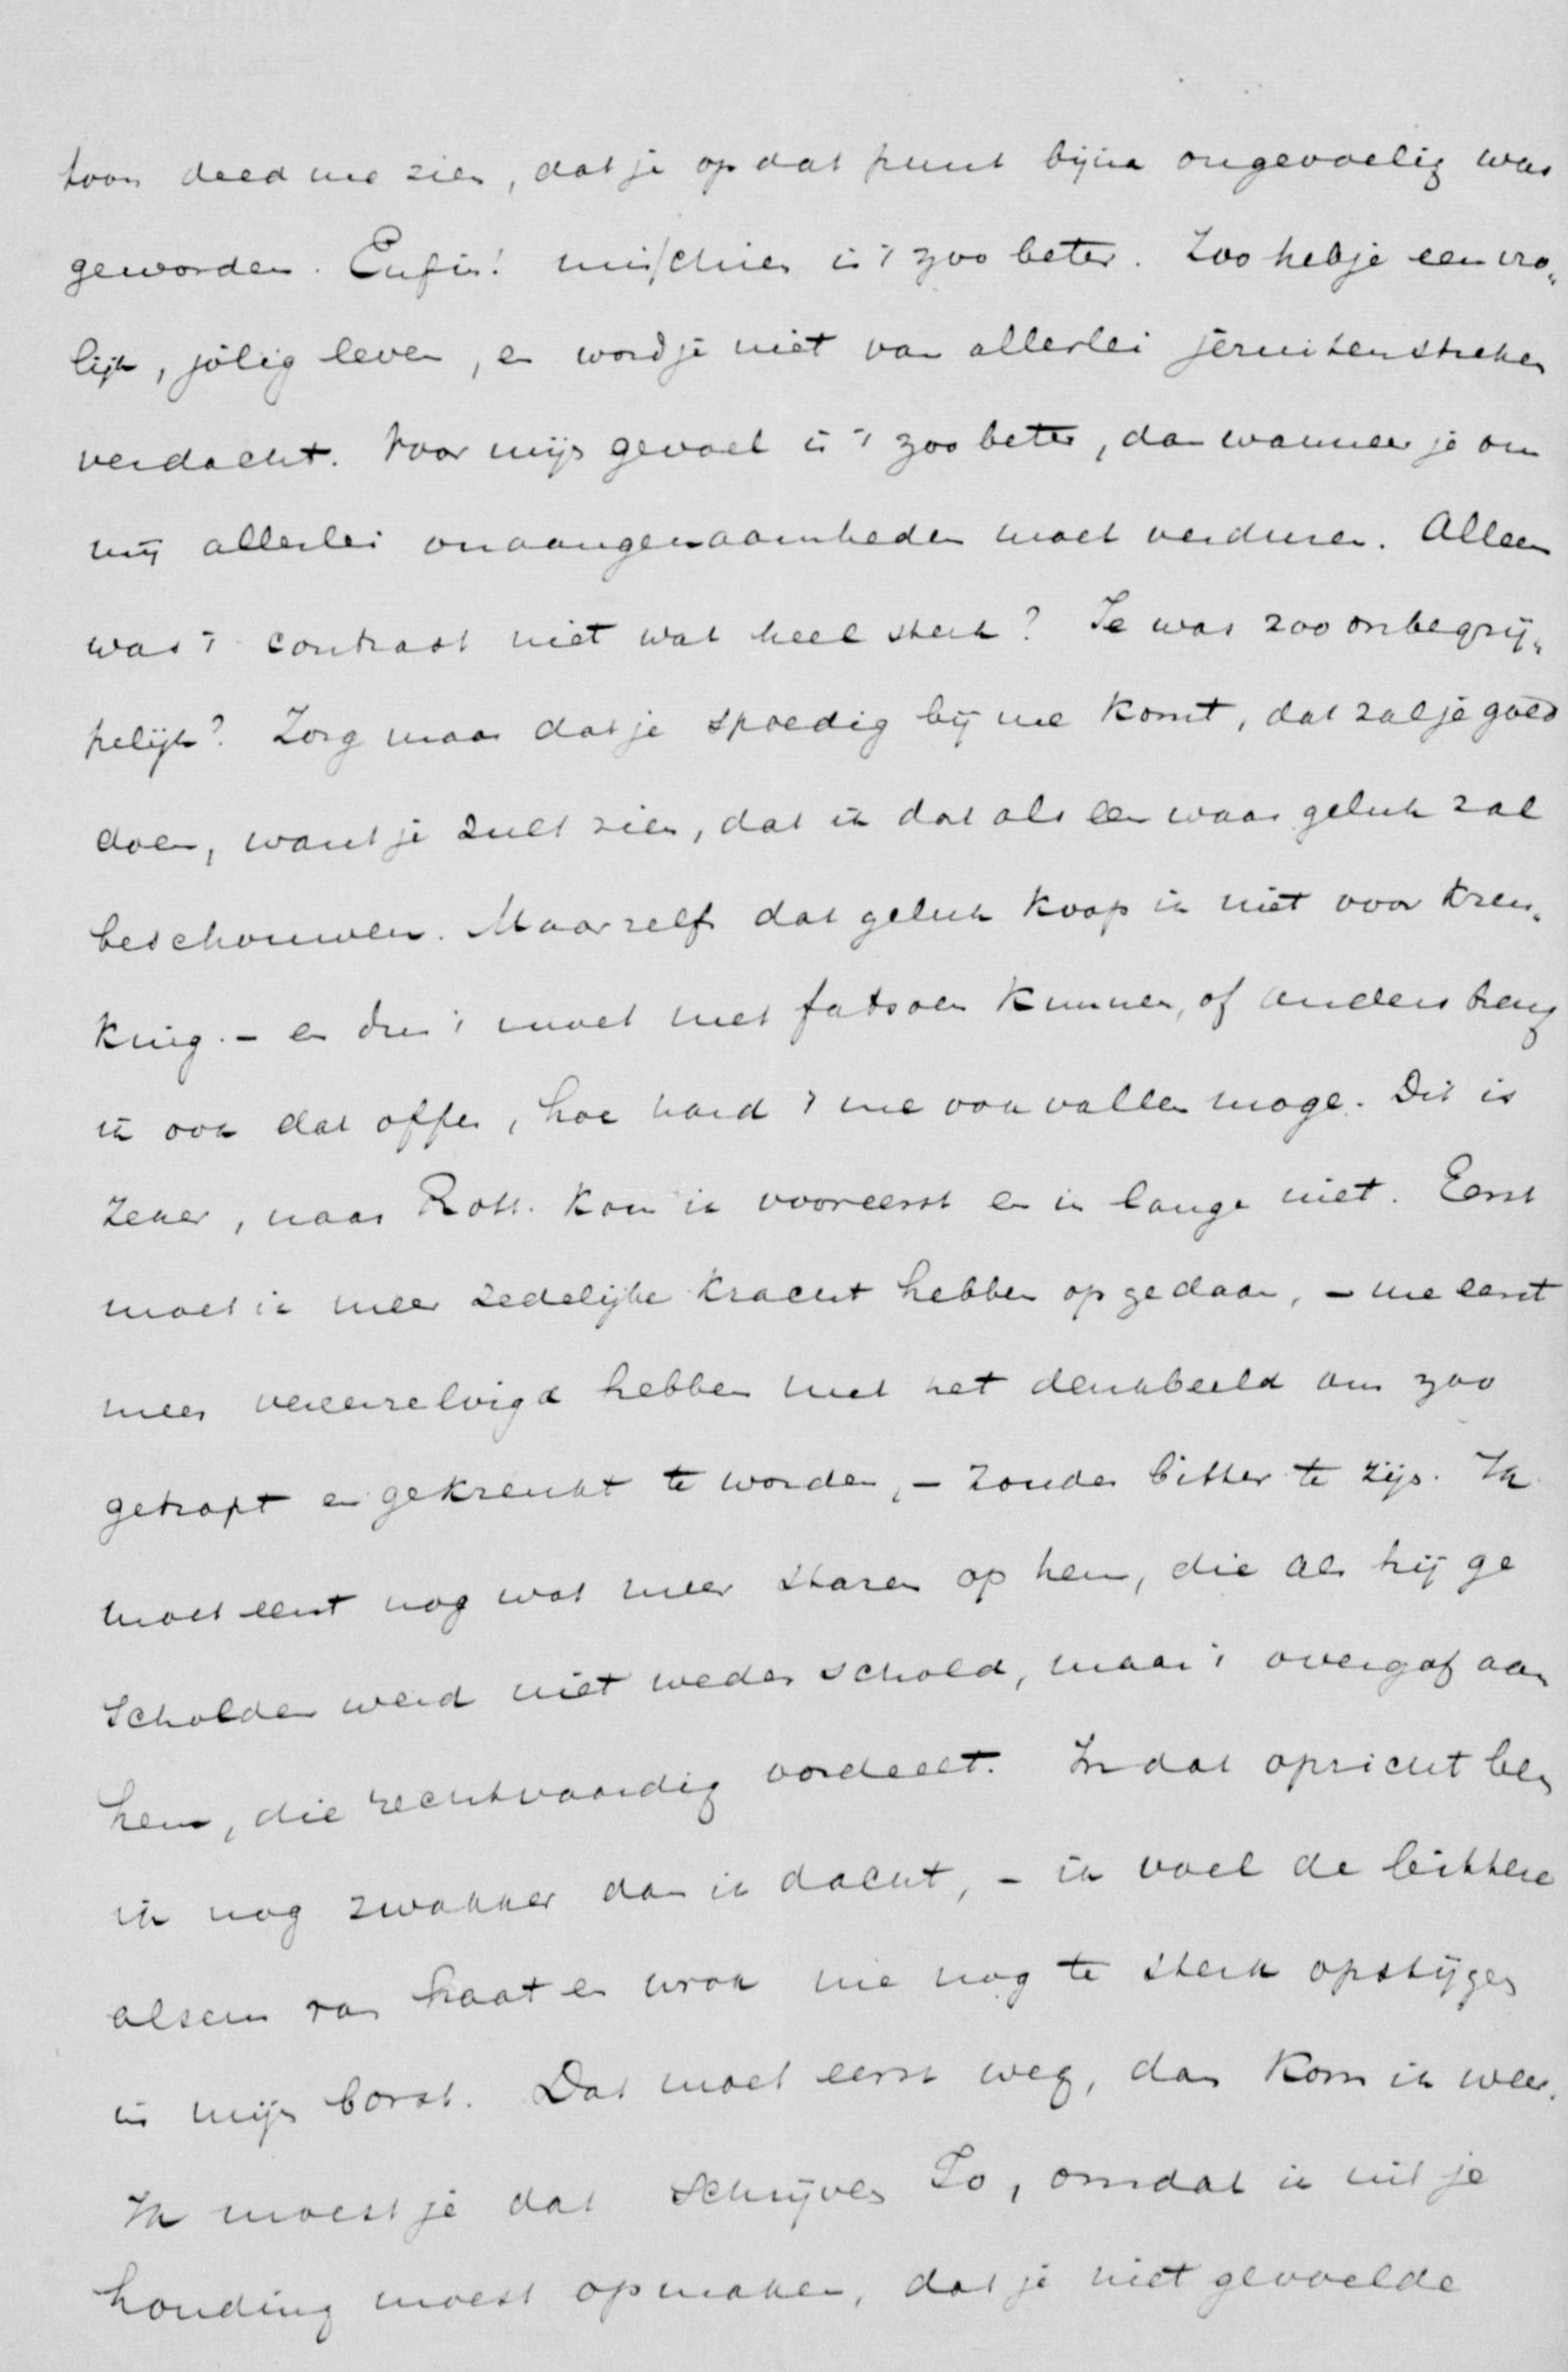 toon deed me zien, dat je op dat punt bijna ongevoelig was
geworden. Enfin! misschien is 't zoo beter. Zoo heb je een vro„
lijk, jolig leven, en word je niet van allerlei jezuitenstreken
verdacht. Voor mijn gevoel is 't zoo beter, dan wanneer je om
mij allerlei onaangenaamheden moet verduren. Alleen
was 't contrast niet wat heel sterk? Je was zoo onbegrij„
pelijk? Zorg maar dat je spoedig bij me komt, dat zal je goed
doen, want je zult zien, dat ik dat als een waar geluk zal
beschouwen. Maar zelfs dat geluk koop ik niet voor kren„
king. – en dus 't moet met fatsoen kunnen, of anders breng
ik ook dat offer, hoe hard 't me ook vallen moge. Dit is
zeker, naar Rott. kom ik vooreerst en in lange niet. Eerst
moet ik meer zedelijke kracht hebben opgedaan, – me eerst
meer vereenzelvigd hebben met het denkbeeld om zoo
getrapt en gekrenkt te worden, – zonder bitter te zijn. Ik
moet eerst nog wat meer staren op hem, die als hij ge
scholden werd niet weder schold, maar 't overgaf aan
hem, die rechtvaardig oordeelt. In dat opzicht ben
ik nog zwakker dan ik dacht, – ik voel de bittere
alsem van haat en wrok me nog te sterk opstijgen
in mijn borst. Dat moet eerst weg, dan kom ik weer.
Ik moest je dat schrijven Jo, omdat ik uit je
houding moest opmaken, dat je niet gevoelde